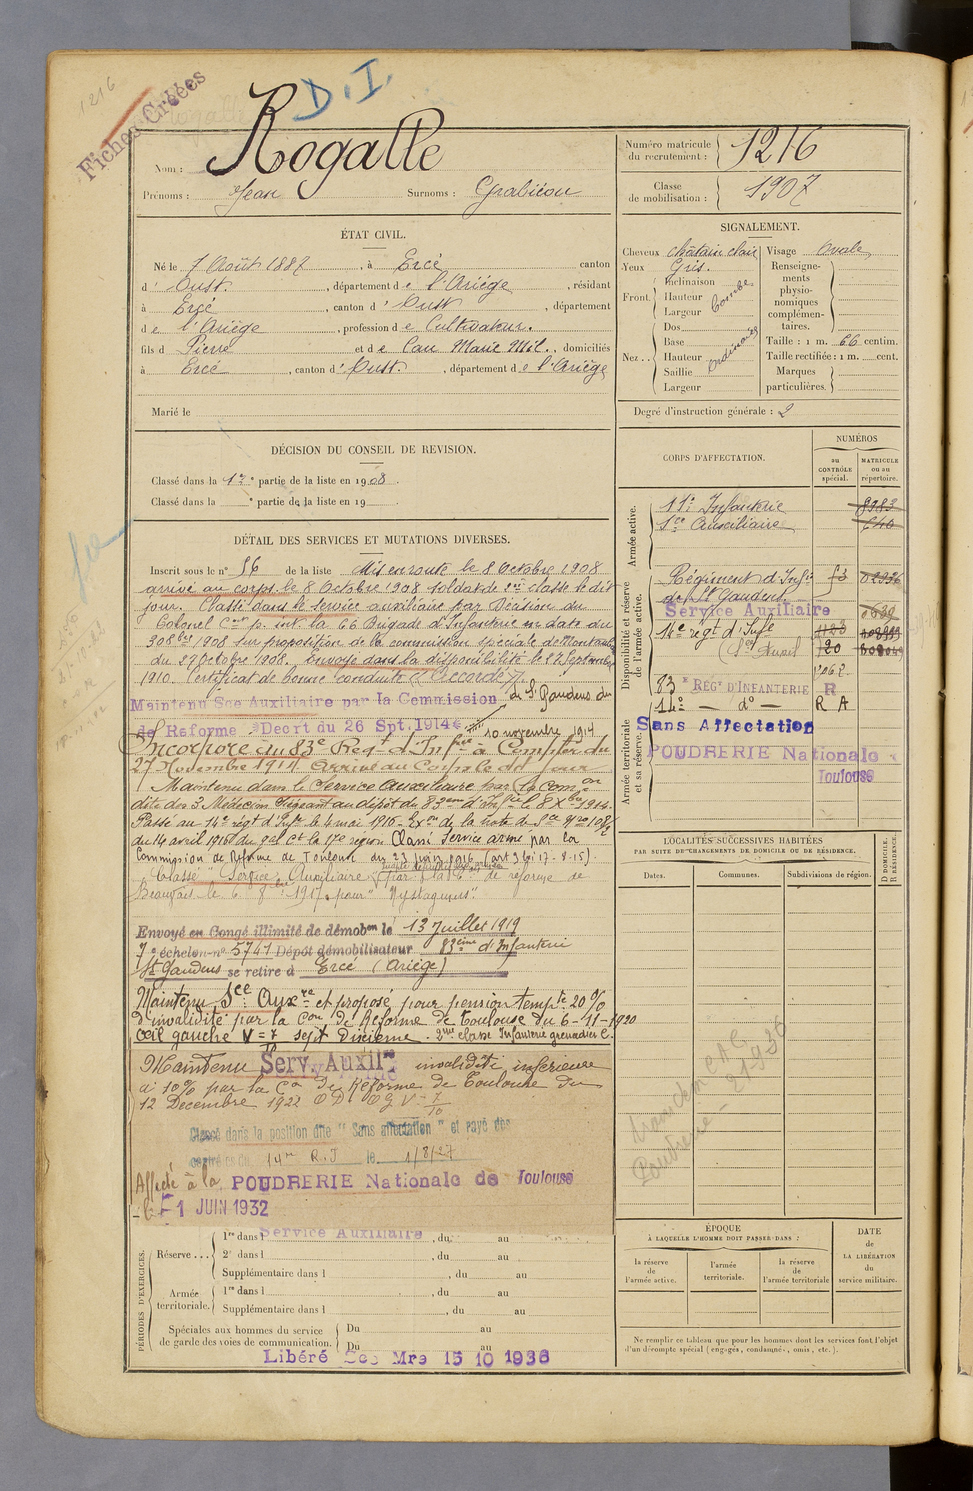 1216
Fiches Créées
D.I.
Nom : Rogalle
Prénoms : Jean Surnoms : Grabicou
Numéro matricule du recrutement : 1216
Classe de mobilisation : 1907
ÉTAT CIVIL.
Né le 7 Août 1887, à Ercé canton
d' Oust, département de l'Ariège, résidant
à Ercé, canton d' Oust, département
de l'Ariège, profession de Cultivateur.
fils d Pierre et de Cau Marie Mil., domiciliés
à Ercé, canton d' Oust., département de l'Ariège
Marié le
SIGNALEMENT.
Cheveux châtain clair
Yeux Gris.
Front Inclinaison
Hauteur
Largeur
bombé
Nez Dos
Base
Hauteur
Saillie
Largeur
ordinaire
Visage Ovale
Renseignements physionomiques complémentaires.
Taille : 1 m. 66 centim.
Taille rectifiée : 1 m. cent.
Marques particulières.
Degré d'instruction générale : 2
DÉCISION DU CONSEIL DE REVISION.
Classé dans la 1re partie de la liste en 1908.
Classé dans la e partie de la liste en 19
DÉTAIL DES SERVICES ET MUTATIONS DIVERSES.
Inscrit sous le n° 56 de la liste Mis en route le 8 Octobre 1908
arrivé au corps le 8 Octobre 1908 soldat de 2e classe le dit
jour. Classé dans le service auxiliaire par Décision du
Colonel p. int. la 66 Brigade d'Infanterie en date du
30 8bre 1908 sur proposition de la commission spéciale de Montauban
du 29 Octobre 1908. Envoyé dans la disponibilité le
1910. Certificat de bonne conduite "Accordé".
Maintenu Sce Auxiliaire par la Commission de St Gaudens du
de Reforme Décrt du 26 Spt. 1914 10 novembre 1914
Incorporé au 83e Régt d'Infrie à Compter du
27 Novembre 1914 Arrivé au Corps le dit jour
Maintenu dans le Service Auxiliaire par la Comon
dite des 3 Médecins siégeant au dépôt du 83eme d'Infrie le 8 Xbre 1914.
Passé au 14e régt d'Infie le 4 mai 1916
du 14 avril 1916 du gal Ct la 17e région Classé Service armé par la
Commission de Réforme de Toulouse du 23 juin 1916
Classé "Service Auxiliaire" par la de reforme de
Beauvais le 6 8bre 1917, pour "Nystagmus".
Envoyé en Congé illimité de démobon le 13 Juillet 1919
7e échelon - n° 5741 Dépôt démobilisateur 83eme d'Infanterie
St Gaudens se retire à Ercé (Ariège)
Maintenu Sce Auxre et proposé pour pension tempre 20%
d'invalidité par la Con de Réforme de Toulouse du 6-11-1920
œil gauche V = 7/10 sept Dixième - 2eme classe Infanterie grenadier C.
Maintenu Serv. Auxilre invalidité inférieure
à 10% par la Con de Réforme de Toulouse du
12 Décembre 1922 OD OG V = 7/10
Classé dans la position dite "Sans affectation" et rayé des
contrôles du 14me R.I le 1/8/27
Affecté à la POUDRERIE Nationale de Toulouse
le 1 JUIN 1932
CORPS D'AFFECTATION.
NUMÉROS
au CONTRÔLE spécial.
MATRICULE ou au répertoire.
Armée active.
11e Infanterie 8983
Sce Auxiliaire 640
Disponibilité et réserve de l'armée active.
Régiment d'Infie
de St Gaudens
Service Auxiliaire
14e régt d'Infie 1123
(Sce Auxil 720
83e REGt D'INFANTERIE R
14e — do — R A
Armée territoriale et sa réserve.
Sans Affectation
POUDRERIE Nationale
Toulouse
LOCALITÉS SUCCESSIVES HABITÉES
PAR SUITE DE CHANGEMENTS DE DOMICILE OU DE RÉSIDENCE.
Dates.
Communes.
Subdivisions de région.
D DOMICILE.
R RÉSIDENCE.
Poudrerie
PÉRIODES D'EXERCICES.
Réserve ... 1re dans l Service Auxiliaire, du au
2e dans l, du au
Supplémentaire dans l, du au
Armée territoriale. 1re dans l, du au
Supplémentaire dans l, du au
Spéciales aux hommes du service de garde des voies de communication. Du au
Du au
Libéré Sce Mre 15 10 1936
ÉPOQUE
À LAQUELLE L'HOMME DOIT PASSER DANS :
la réserve de l'armée active.
l'armée territoriale.
la réserve de l'armée territoriale
DATE de LA LIBÉRATION du service militaire.
Ne remplir ce tableau que pour les hommes dont les services font l'objet
d'un décompte spécial (engagés, condamnés, omis, etc.).